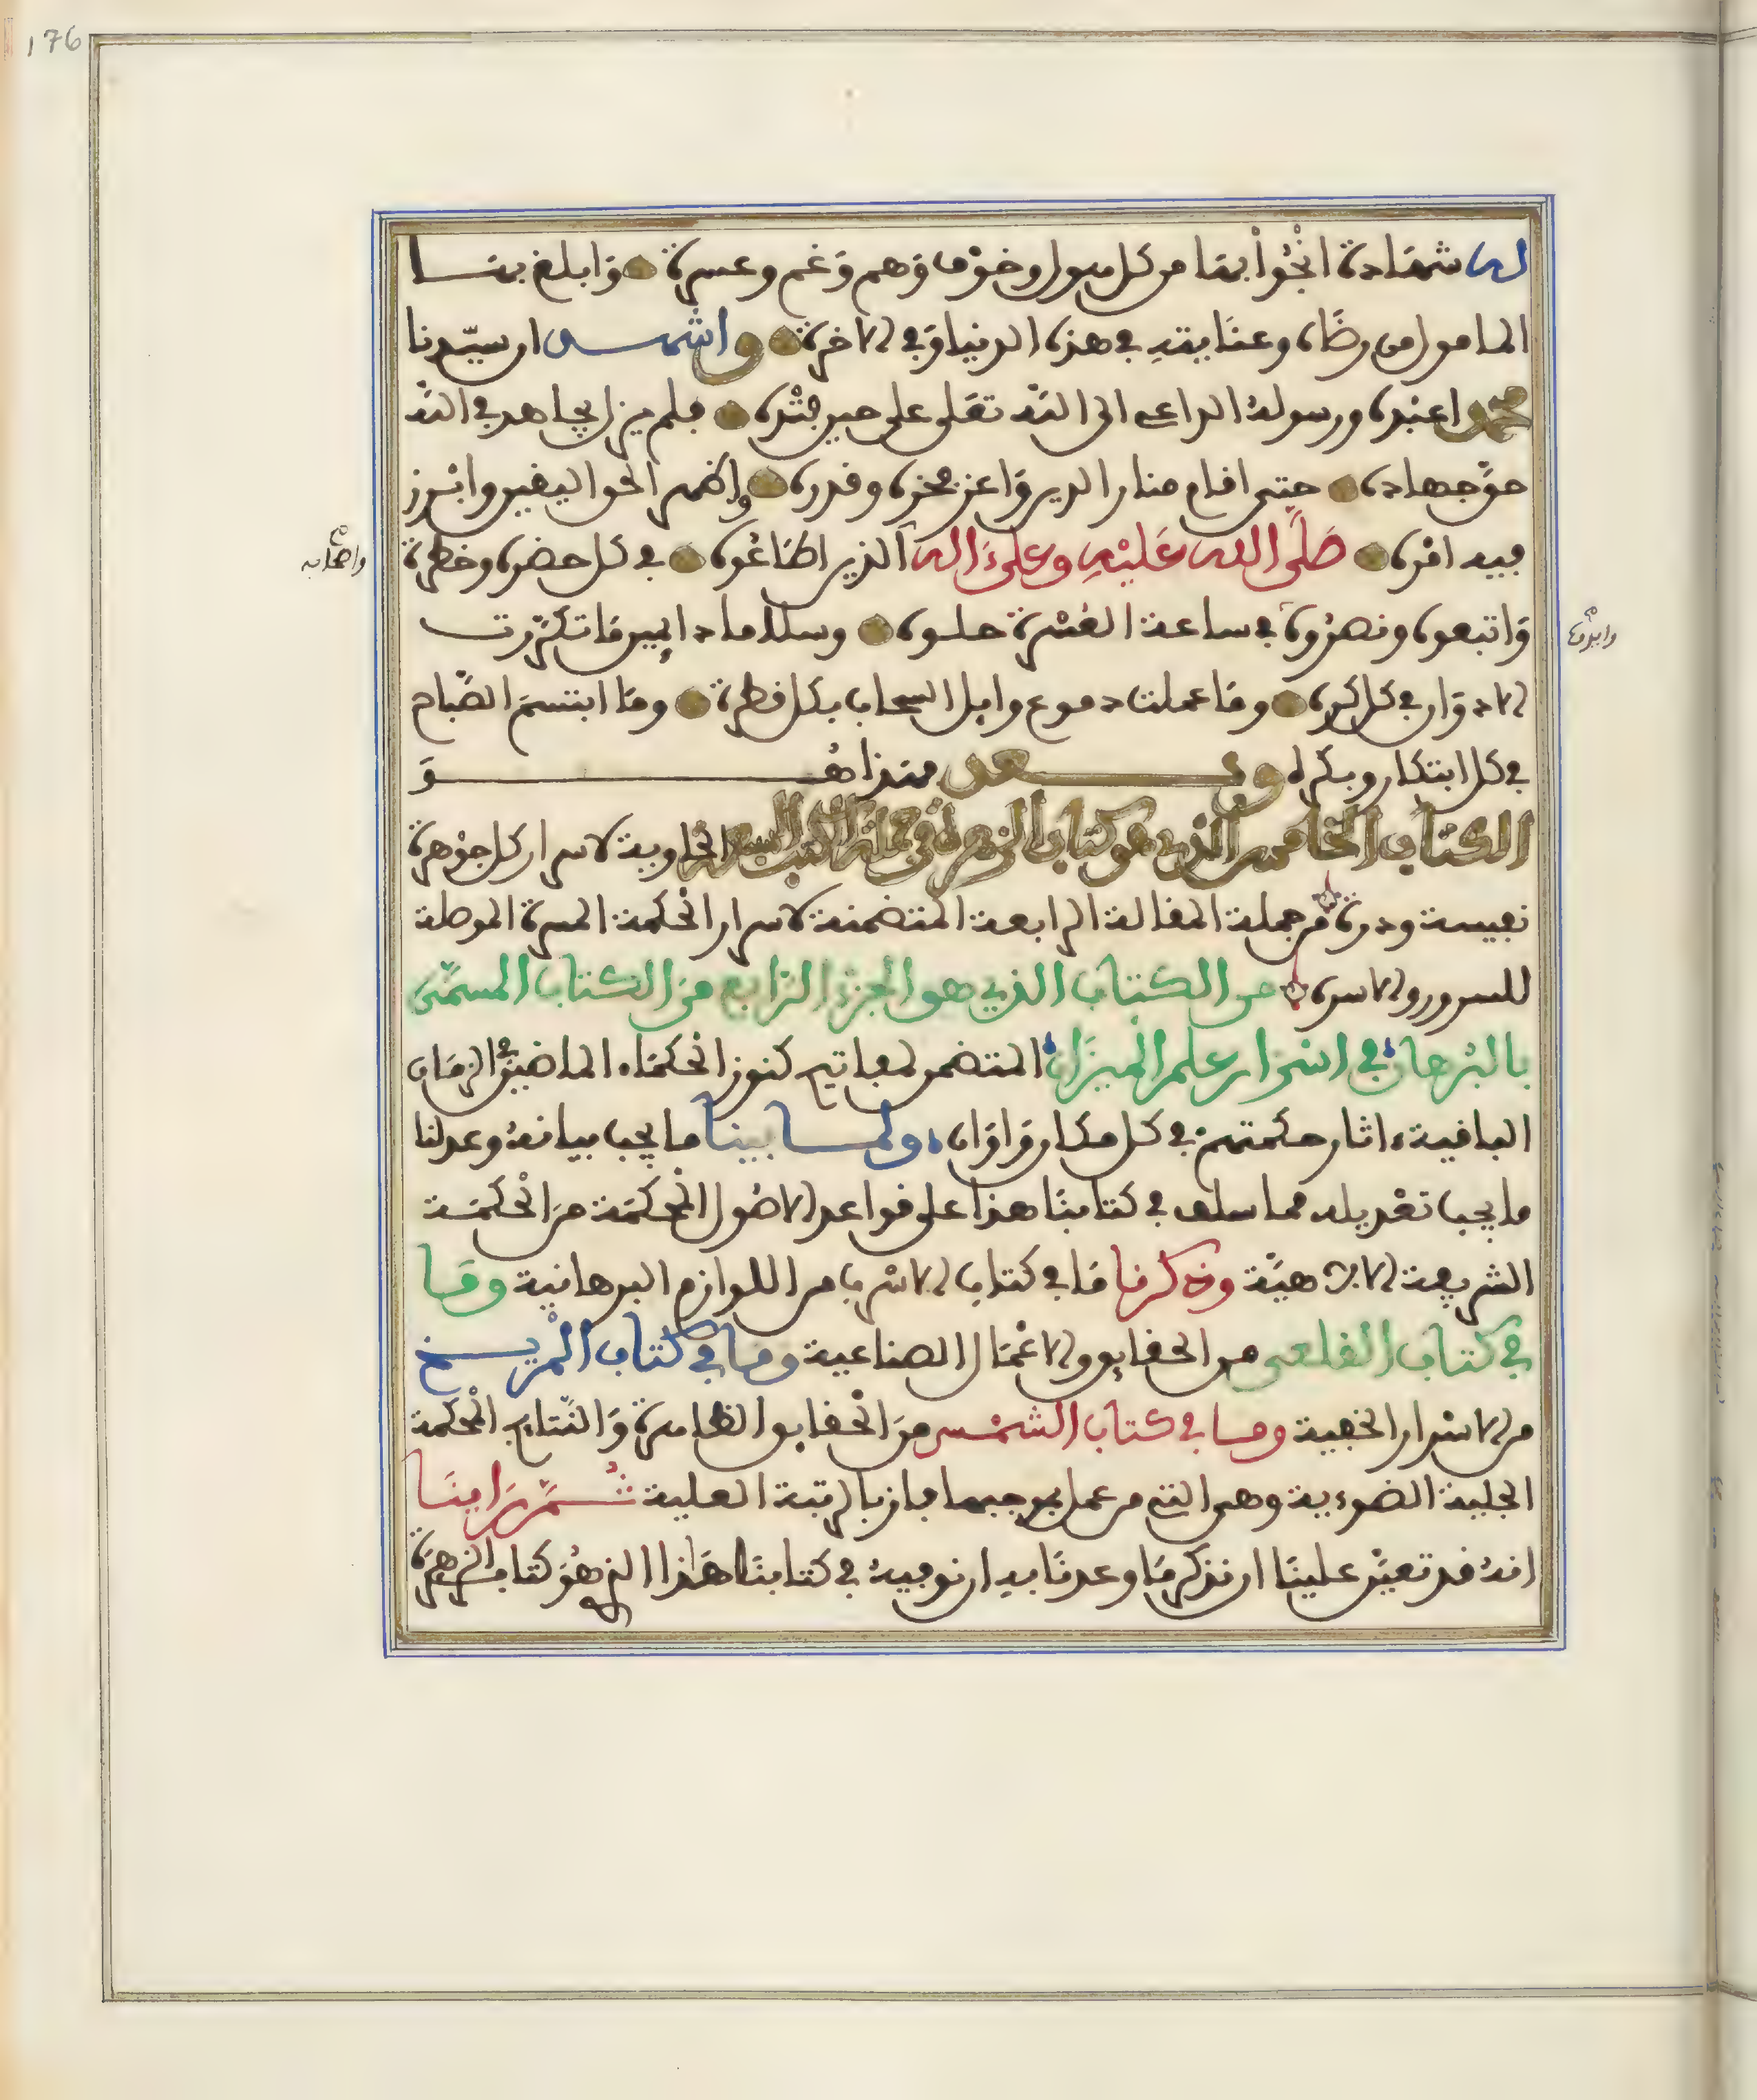 176
له شهادة انجوا بها من كل هول وخوف وهم وغم وعسرة وابلغ بها
المامول من رضاه وعنايته في هذه الدنيا وفي الاخرة واشهد ان سيّدنا
محمدا عبده ورسوله الداعي الى الله تعلى على حين فترة فلم يزل يجاهد في الله
حق جهاده حتى اقام منار الدين واعز فخره وقدره واظهر الحق اليقين وابرز
فيه امره صَلَّى الله عَلَيْهِ وعلى ءاله الذين اطاعوه في كل حضرة وخطرة
واصحابه
واتبعوه ونصروه في ساعة العسرة حلوه وسلاما دايمين ما تكرّرت
الادوار في كل كرة وما هملت دموع وابل السحاب بكل قطرة وما ابتسم الصّباح
في كل ابتكار وبكرة وبعد فهذا هُوَ
الكتاب الخامس الذي هو كتاب الزهرة في جملة الكتب السبعة الحاوية لاسرار كل جوهرة
نفيسة ودرة من جملة المقالة الرابعة المتضمنة لاسرار الحكمة المسرة الموصلة
للسرور والاسرة من الكتاب الذي هو الجزء الرّابع من الكتاب المسمّى
بالبُرهان في اسرار علم الميزان المتضمن لمفاتيح كنوز الحكماء الماضين في الزمان
الباقية ءاثار حكمتهم في كل مكان واوان ولما بينا ما يجب بيانه وعدلنا
ما يجب تعديله مما سلف في كتابنا هذا على قواعد الاصُول المحكمة من الحكمة
الشريفة الالاهيّة وذكرنا ما في كتاب الاسرب من اللوازم البرهانية وما
في كتاب القلعي من الحقايق والاعمال الصناعية وما في كتاب المريخ
من الاسرار الخفية وما في كتاب الشمس من الحقايق الظاهرة والنّتايج المحكمة
الجلية الضوءية وهي التي من عمل بموجبها فاز بالرتبة العلية ثُمَّ رَاينا
انه قد تعيّن علينا ان نذكر ما وعدنا به ان نوفيه في كتابنا هذا الذي هُوَ كتاب الزهرة